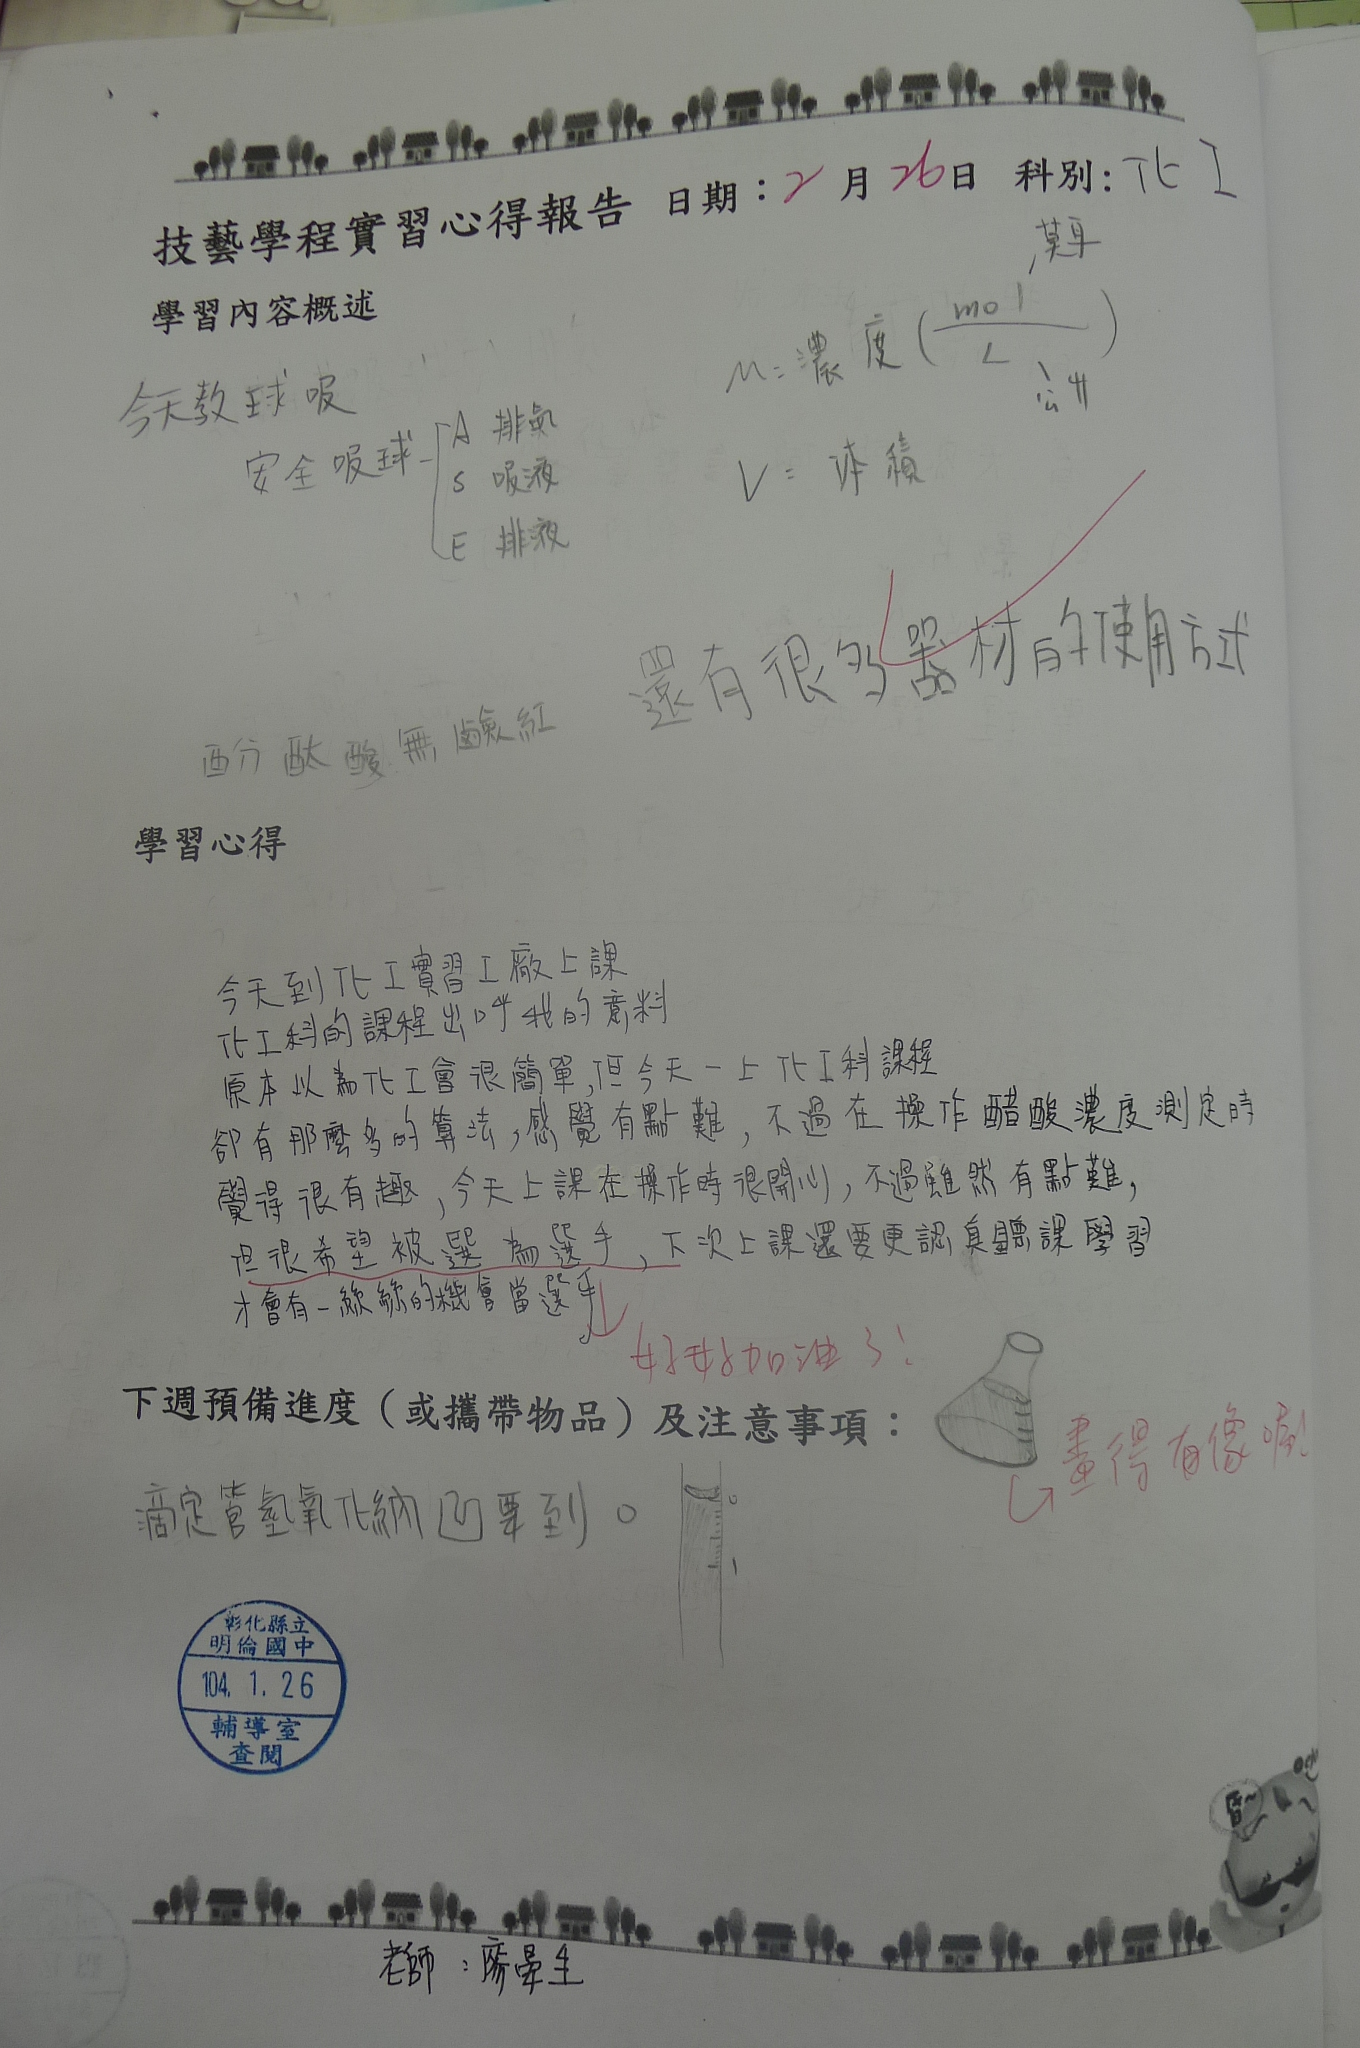 技藝學程實習心得報告 日期：2月26日 科別：化工
學習內容概述
今天教球吸
安全吸球
A 排氣
S 吸液
E 排液
M=濃度(mol/L)
公升
V=体積
還有很多器材的使用方式
酚酞酸無鹼紅
學習心得
今天到化工實習工廠上課
化工科的課程出呼我的意料
原本以為化工會很簡單,但今天一上化工科課程
卻有那麼多的算法,感覺有點難,不過在操作醋酸濃度測定時
覺得很有趣,今天上課在操作時很開心,不過雖然有點難,
但很希望被選為選手,下次上課還要更認真聽課學習
才會有一絲絲的機會當選手
好好加油了!
下週預備進度（或攜帶物品）及注意事項：
畫得有像喔!
滴定管氫氧化納凹要到0
0
1
彰化縣立
明倫國中
104. 1. 26
輔導室
查閱
老師：廖晏生